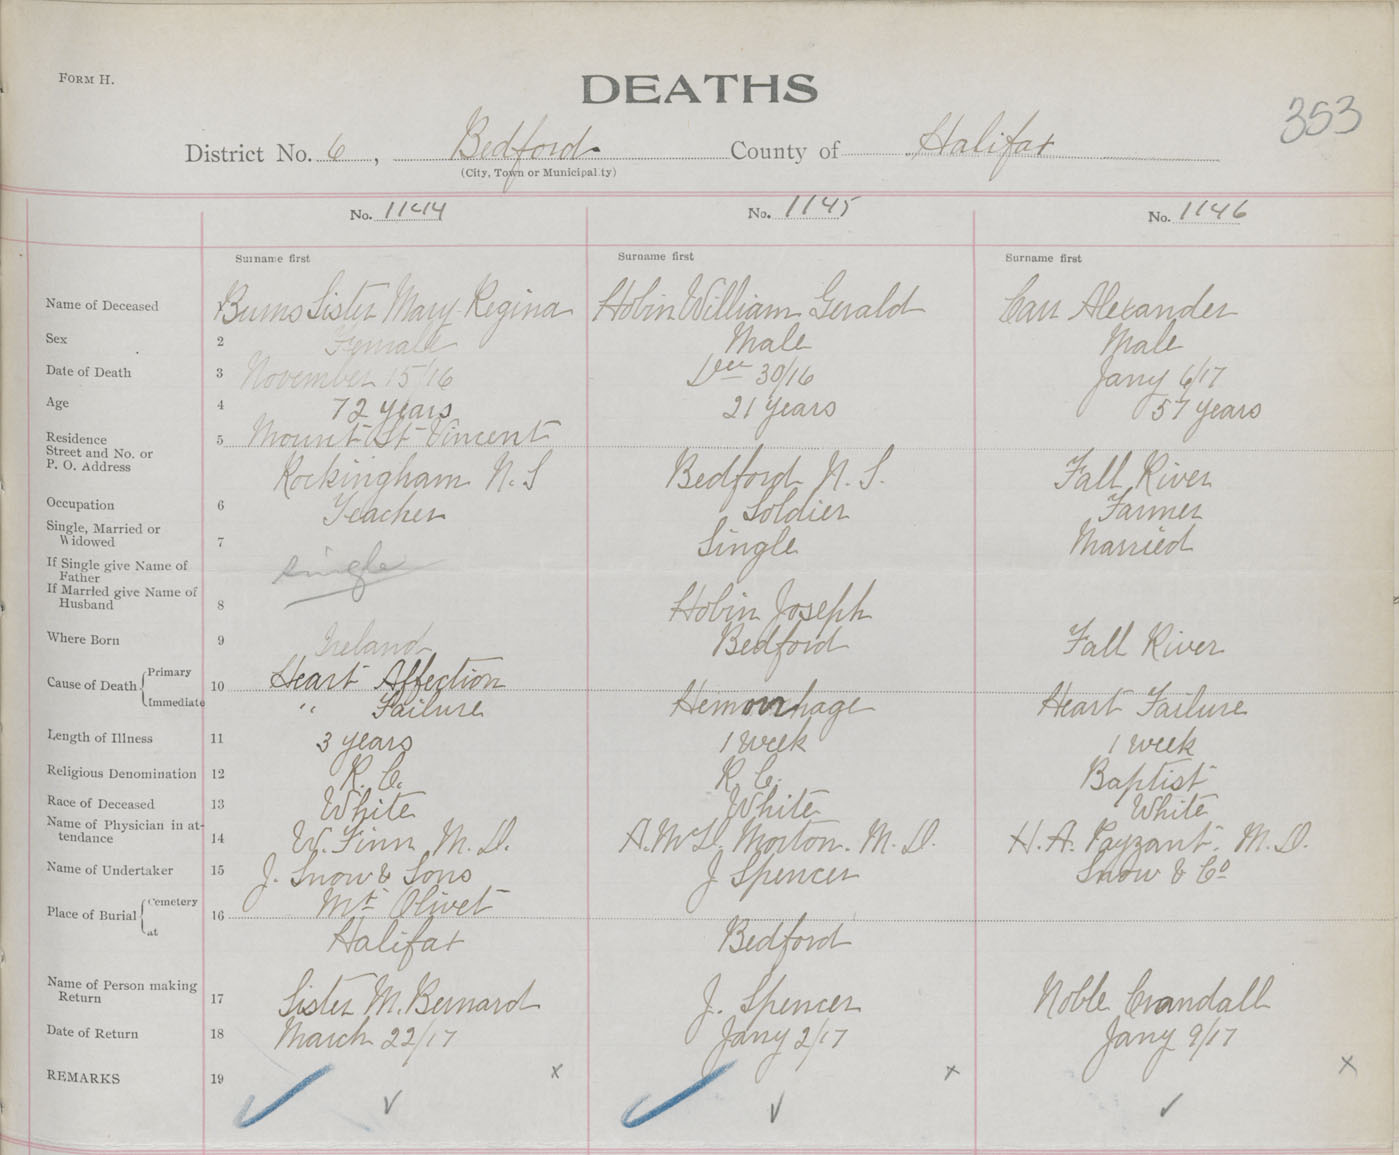 FORM H.
DEATHS
353
District No. 6, Bedford County of Halifax
(City, Town or Municipality)
No. 1144 No. 1145 No. 1146
Surname first Surname first Surname first
Name of Deceased 1 Burns Sister Mary Regina Hobin William Gerald Carr Alexander
Sex 2 Female Male Male
Date of Death 3 November 15/16 Dec 30/16 Jany 6/17
Age 4 72 years 21 years 57 years
Residence 5 Mount St Vincent
Street and No. or
P. O. Address Rockingham N.S Bedford N. S. Fall River
Occupation 6 Teacher Soldier Farmer
Single, Married or
Widowed 7 single Single Married
If Single give Name of
Father
If Married give Name of
Husband 8 Hobin Joseph
Where Born 9 Ireland Bedford Fall River
Cause of Death Primary 10 Heart Affection
Immediate " Failure Hemorrhage Heart Failure
Length of Illness 11 3 years 1 week 1 week
Religious Denomination 12 R. C. R C. Baptist
Race of Deceased 13 White White White
Name of Physician in at-
tendance 14 W. Finn M. D. A. McD. Morton. M. D. H. A. Payzant. M. D.
Name of Undertaker 15 J. Snow & Sons J Spencer Snow & Co
Place of Burial Cemetery 16 Mt Olivet
at Halifax Bedford
Name of Person making
Return 17 Sister M. Bernard J. Spencer Noble Crandall
Date of Return 18 March 22/17 Jany 2/17 Jany 9/17
REMARKS 19 x x x